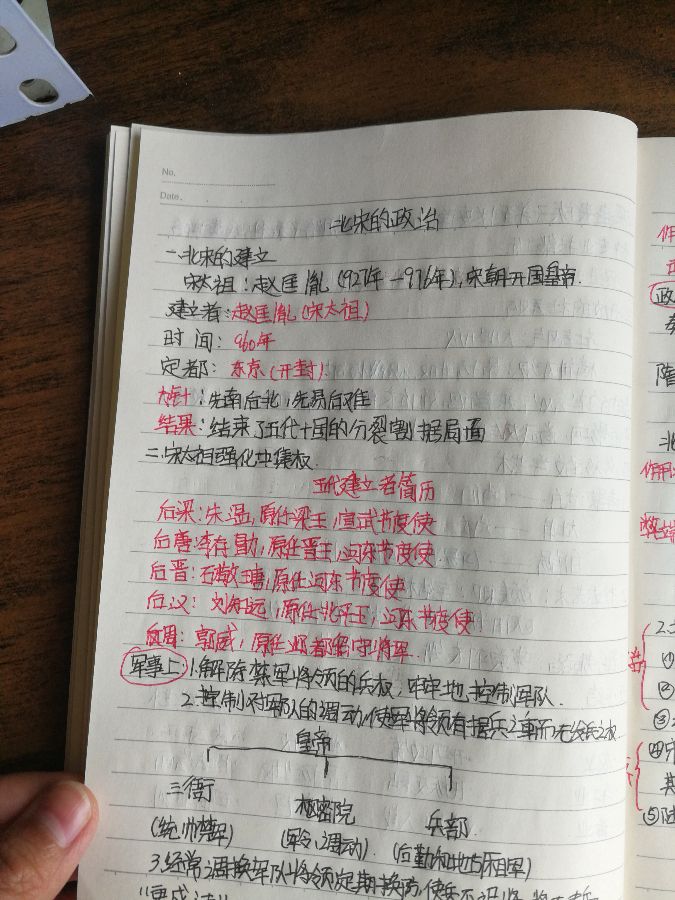 No.
Date.
北宋的政治
一.北宋的建立
宋太祖:赵匡胤(927年-976年),宋朝开国皇帝.
建立者:赵匡胤(宋太祖)
时间:960年
定都:东京(开封)
方针:先南后北,先易后难
结果:结束了五代十国的分裂割据局面
二.宋太祖强化中集权.
五代建立者简历
后梁:朱温,原任梁王,宣武节度使
后唐:李存勖,原任晋王,河东节度使
后晋:石敬瑭,原任河东节度使
后汉:刘知远,原任北平王,河东节度使
后周:郭威,原任邺都留守将军
军事上:1.解除禁军将领的兵权,牢牢地控制军队.
2.控制对军队的调动,使军将领有握兵之重而无统兵之权
皇帝
三衙 枢密院 兵部
(统帅禁军) (军令、调动). (后勤和地方厢军)
3.经常调换军队将领,定期换防,使兵不识将,将
作用
政
隋
北
作用:
2.
①
②
③
④
其
⑤